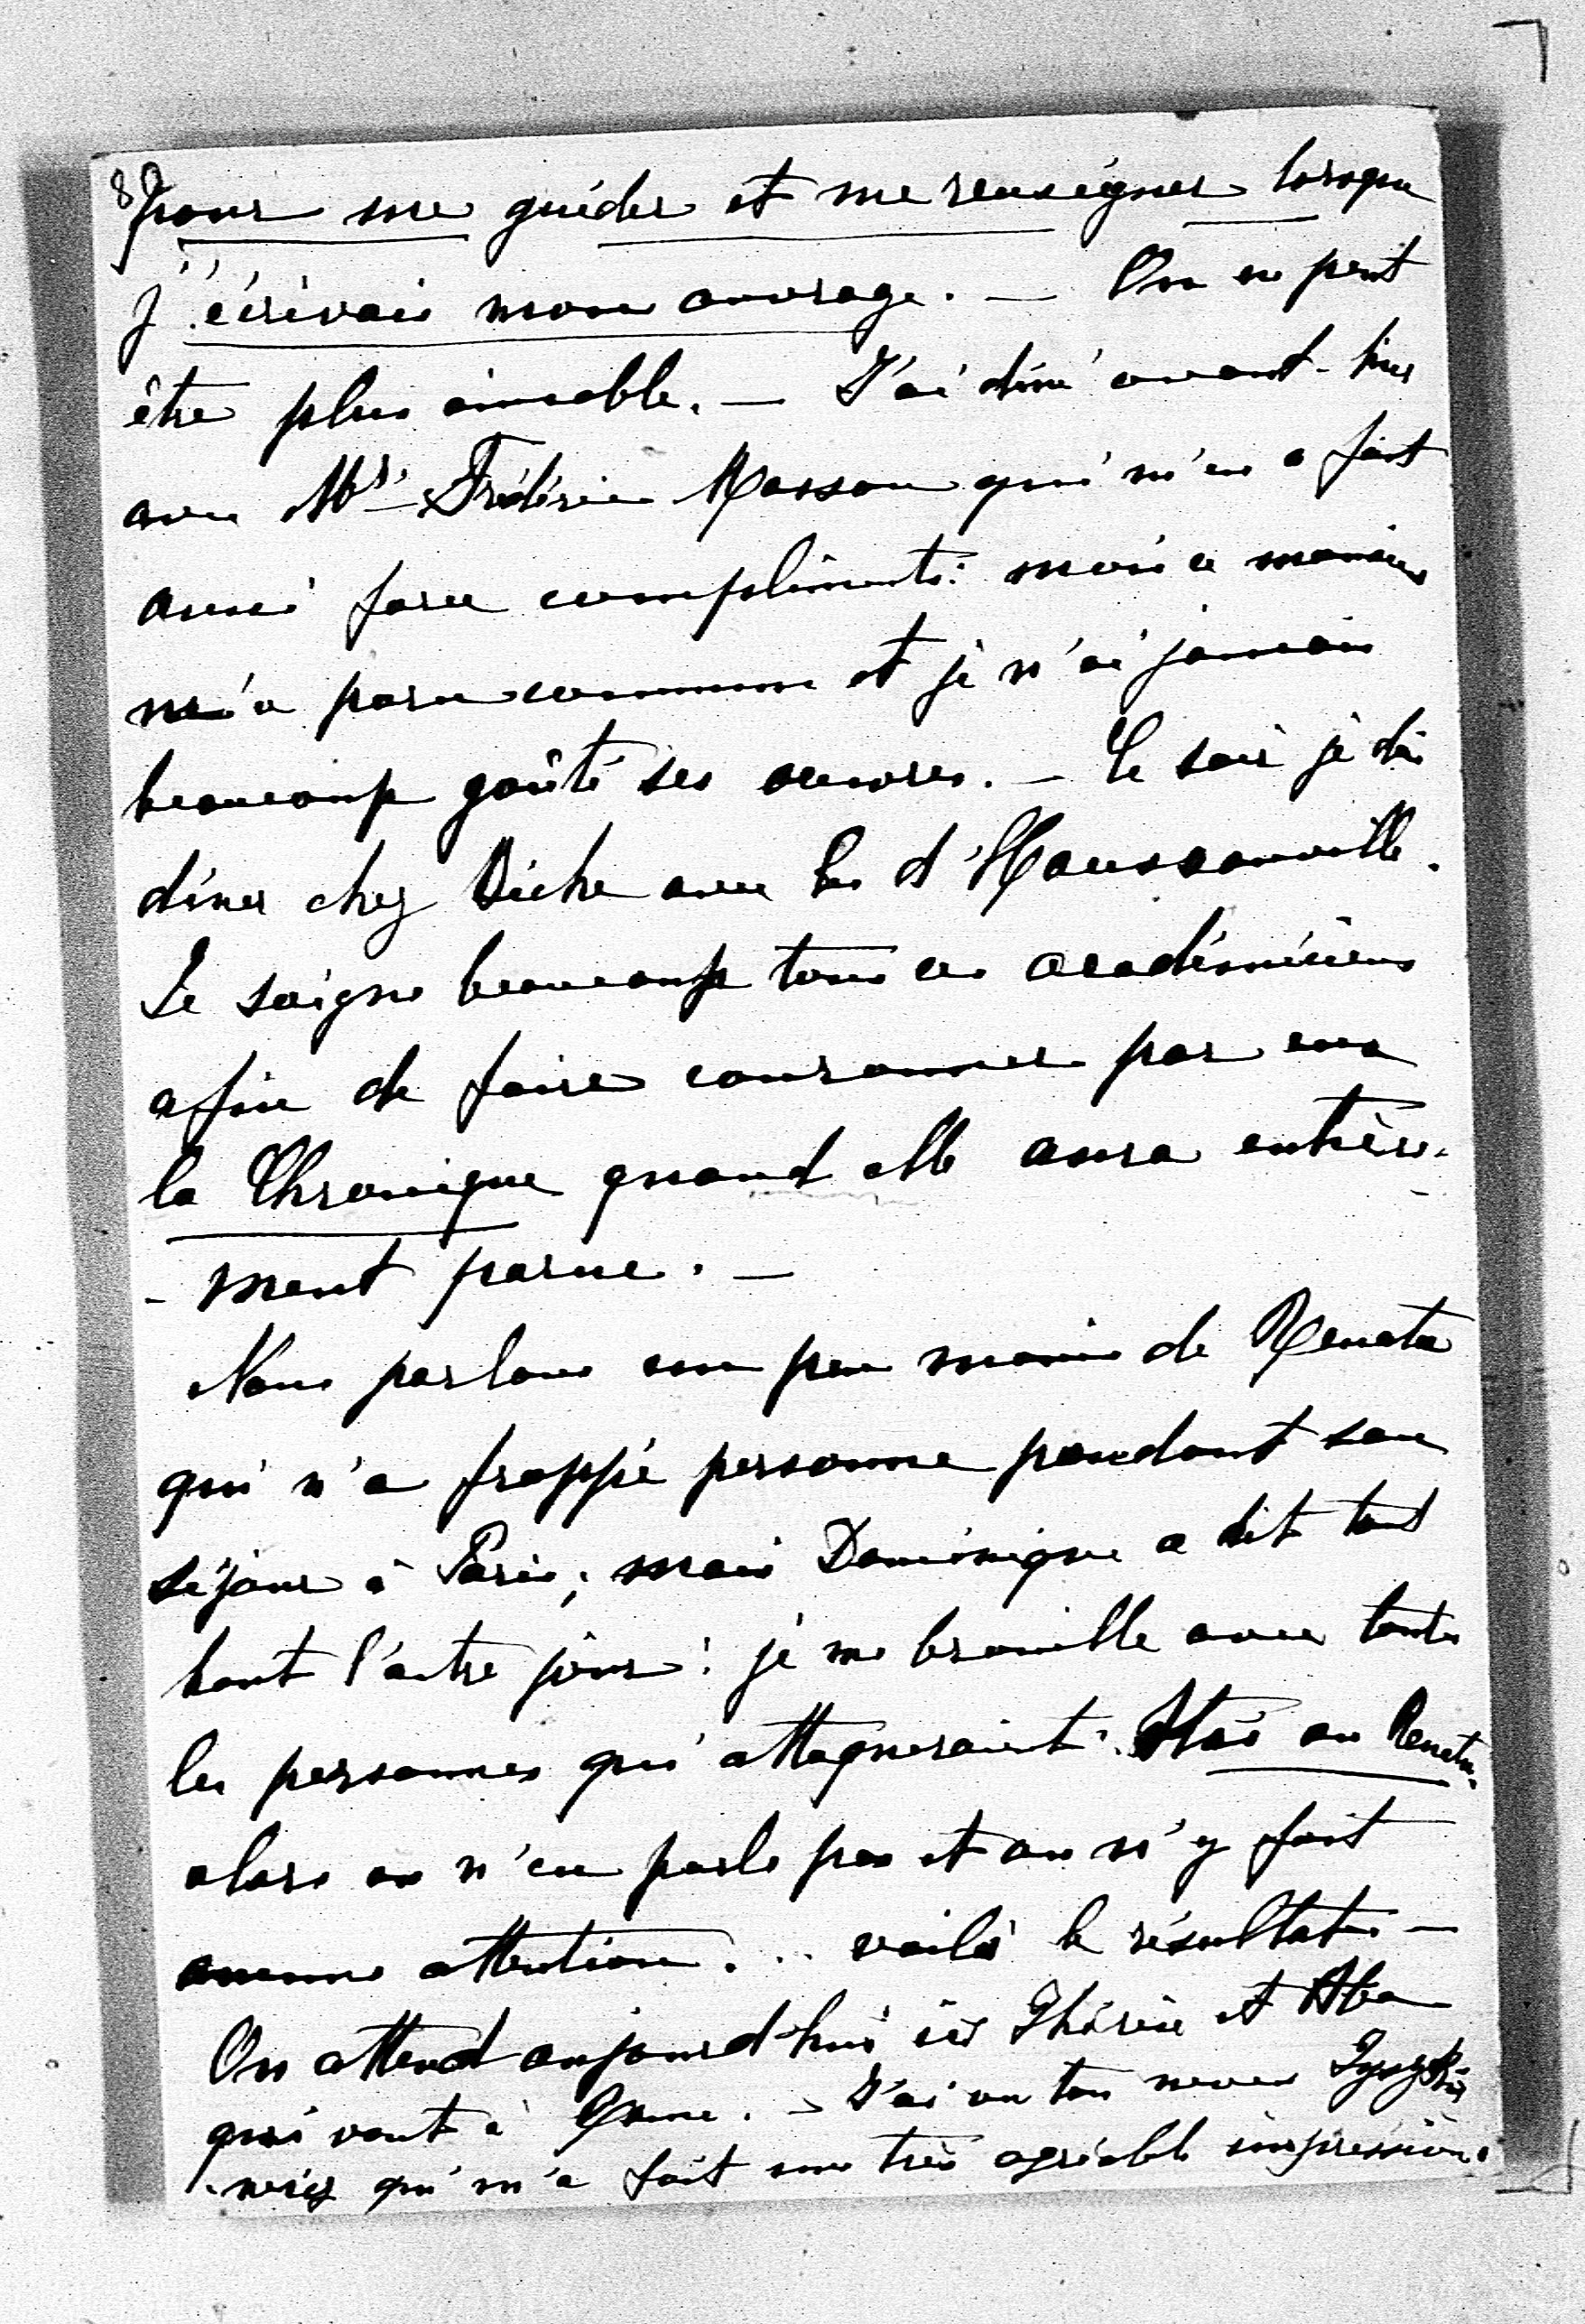 8
pour me guider et me renseigner lorsque
j'écrivais mon ouvrage. — On ne peut
être plus aimable. — J'ai dîné avant-hier
avec Mr Frédéric Masson qui m'en a fait
aussi force compliments: mais ce monsieur
m'a paru commun et je n'ai jamais
beaucoup goûté ses œuvres. — Ce soir je dois
dîner chez Biche avec les d'Haussonville.
Je soigne beaucoup tous ces académiciens
afin de faire couronner par eux
la Chronique quand elle aura entière-
-ment parue. —
Nous parlons un peu moins de Renata
qui n'a frappé personne pendant son
séjour à Paris; mais Dominique a dit tout
haut l'autre jour: je me brouille avec toutes
les personnes qui attaqueraient Staś ou Renata.
alors on n'en parle pas et on n'y fait
aucune attention... voilà le résultat. —
On attend aujourd'hui ici Thérèse et Aba
qui vont à Rome. — J'ai vu ton neveu
qui m'a fait une très agréable impression.